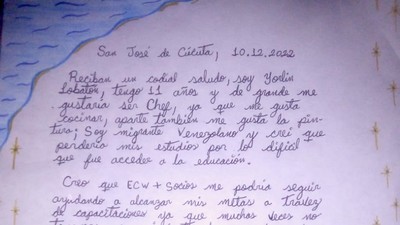 San José de Cúcuta, 10.12.2022
Reciban un codial saludo, soy Yorlin
Lobatón, tengo 11 años y de grande me
gustaria ser Chef, ya que me gusta
cocinar, aparte tambien me gusta la pin-
tura; Soy migrante Venezolano y creí que
perderia mis estudios por lo dificil
que fue acceder a la educación.
Creo que ECW + Socios me podria seguir
ayudando a alcanzar mis metas a travez
de capacitaciones ya que muchas veces no